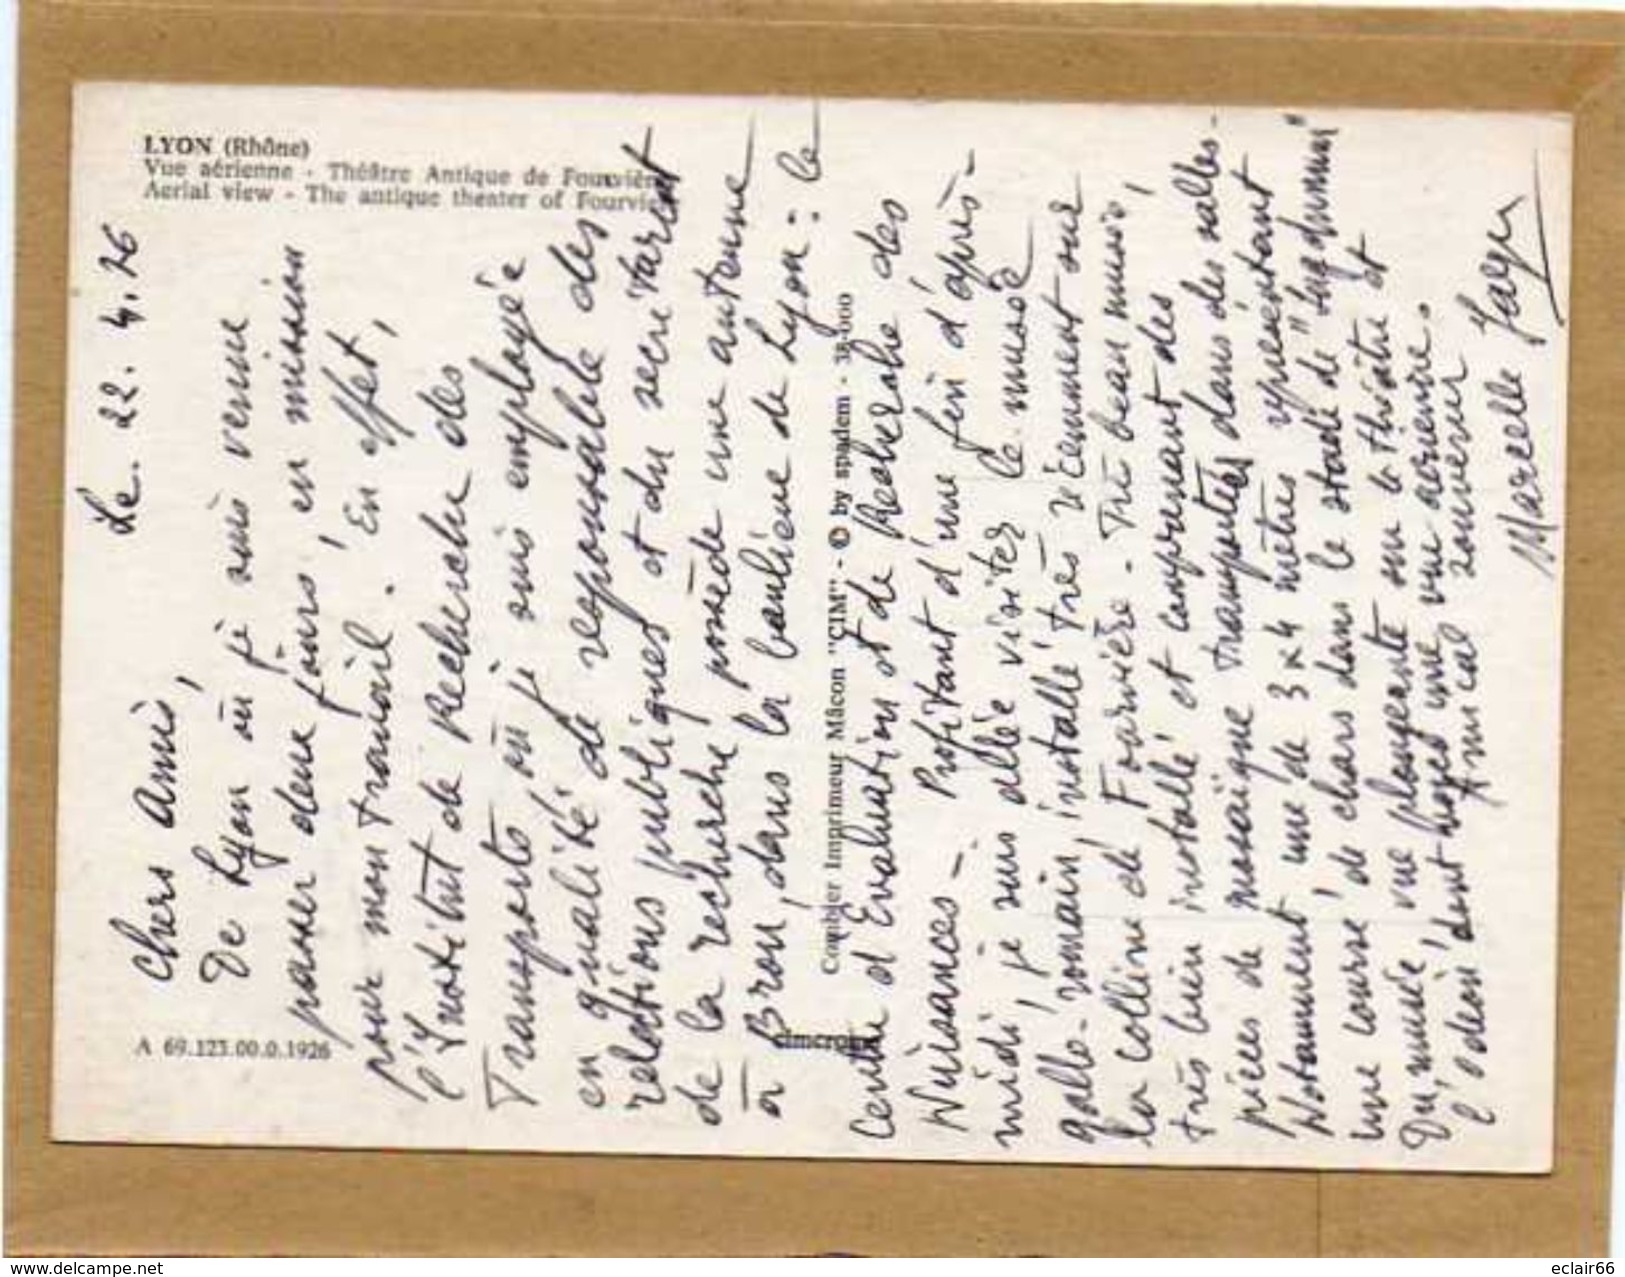 LYON (Rhône)
Vue aérienne - Théâtre Antique de Fourvière
Aerial view - The antique theater of Fourvière
A 69.123.00.0.1926
Combier Imprimeur Mâcon "CIM" - © by spadem - 38-000
cimcrome
Le. 22. 4. 76
Chers Amis,
De Lyon où je suis venue
passer deux jours, en mission
pour mon travail. En effet,
l'Institut de Recherche des
Transports où je suis employée
en qualité de responsable des
relations publiques et du secrétariat
de la recherche, possède une antenne
à Bron, dans la banlieue de Lyon : le
Centre d'Evaluation et de Recherche des
Nuisances - Profitant d'une fin d'après-
midi, je suis allée visiter le musée
gallo-romain, installé très récemment sur
la colline de Fourvière - Très beau musée,
très bien installé et comprenant des
pièces de mosaïque transportées dans des salles -
Notamment, une de 3 x 4 mètres représentant
une course de chars dans le stade de "Lugdunum"
Du musée, vue plongeante sur le théâtre et
l'odéon dont voyez une vue aérienne.
Amical souvenir
Marcelle